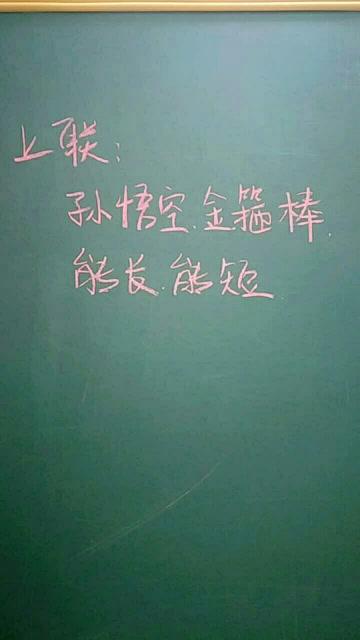 上联：
孙悟空.金箍棒.
能长.能短.